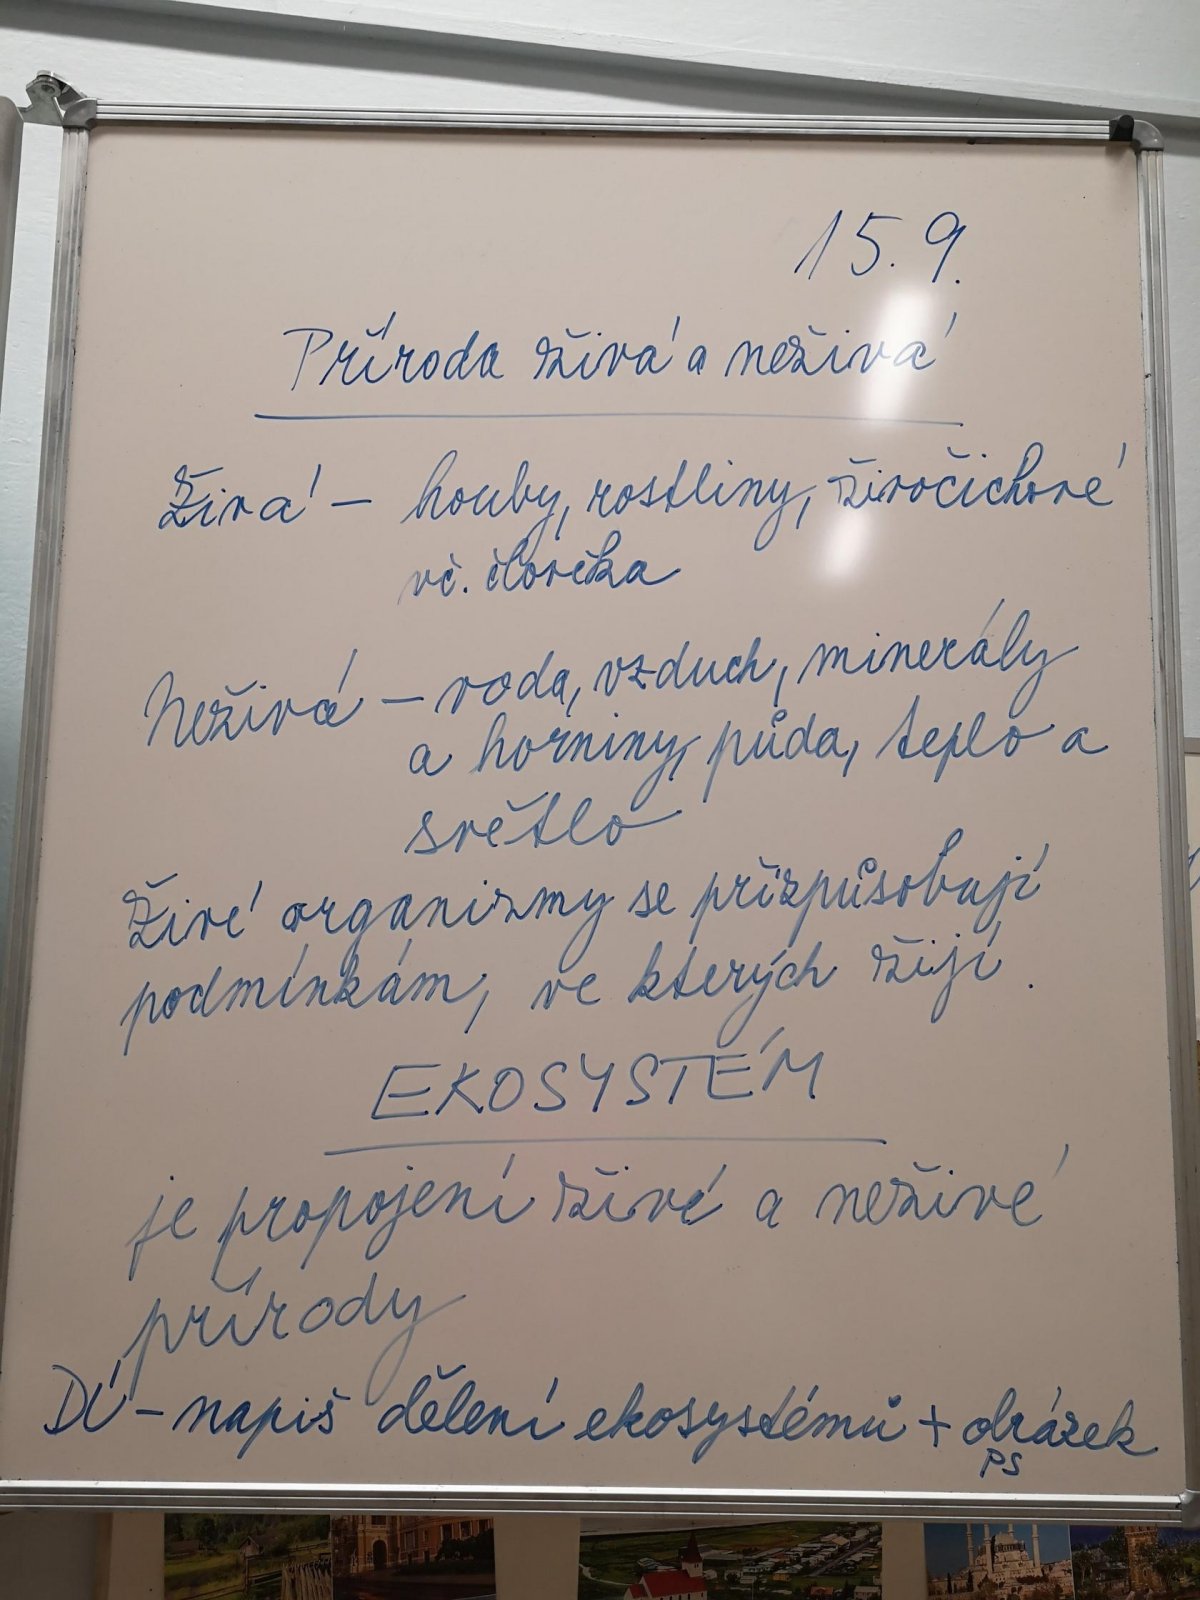 15. 9.
Příroda živá a neživá
Živá – houby, rostliny, živočichové
vč. člověka
Neživá – voda, vzduch, minerály
a horniny, půda, teplo a
světlo
Živé organizmy se přizpůsobují
podmínkám, ve kterých žijí.
EKOSYSTÉM
je propojení živé a neživé
přírody
DÚ – napiš dělení ekosystémů + obrázek
PS